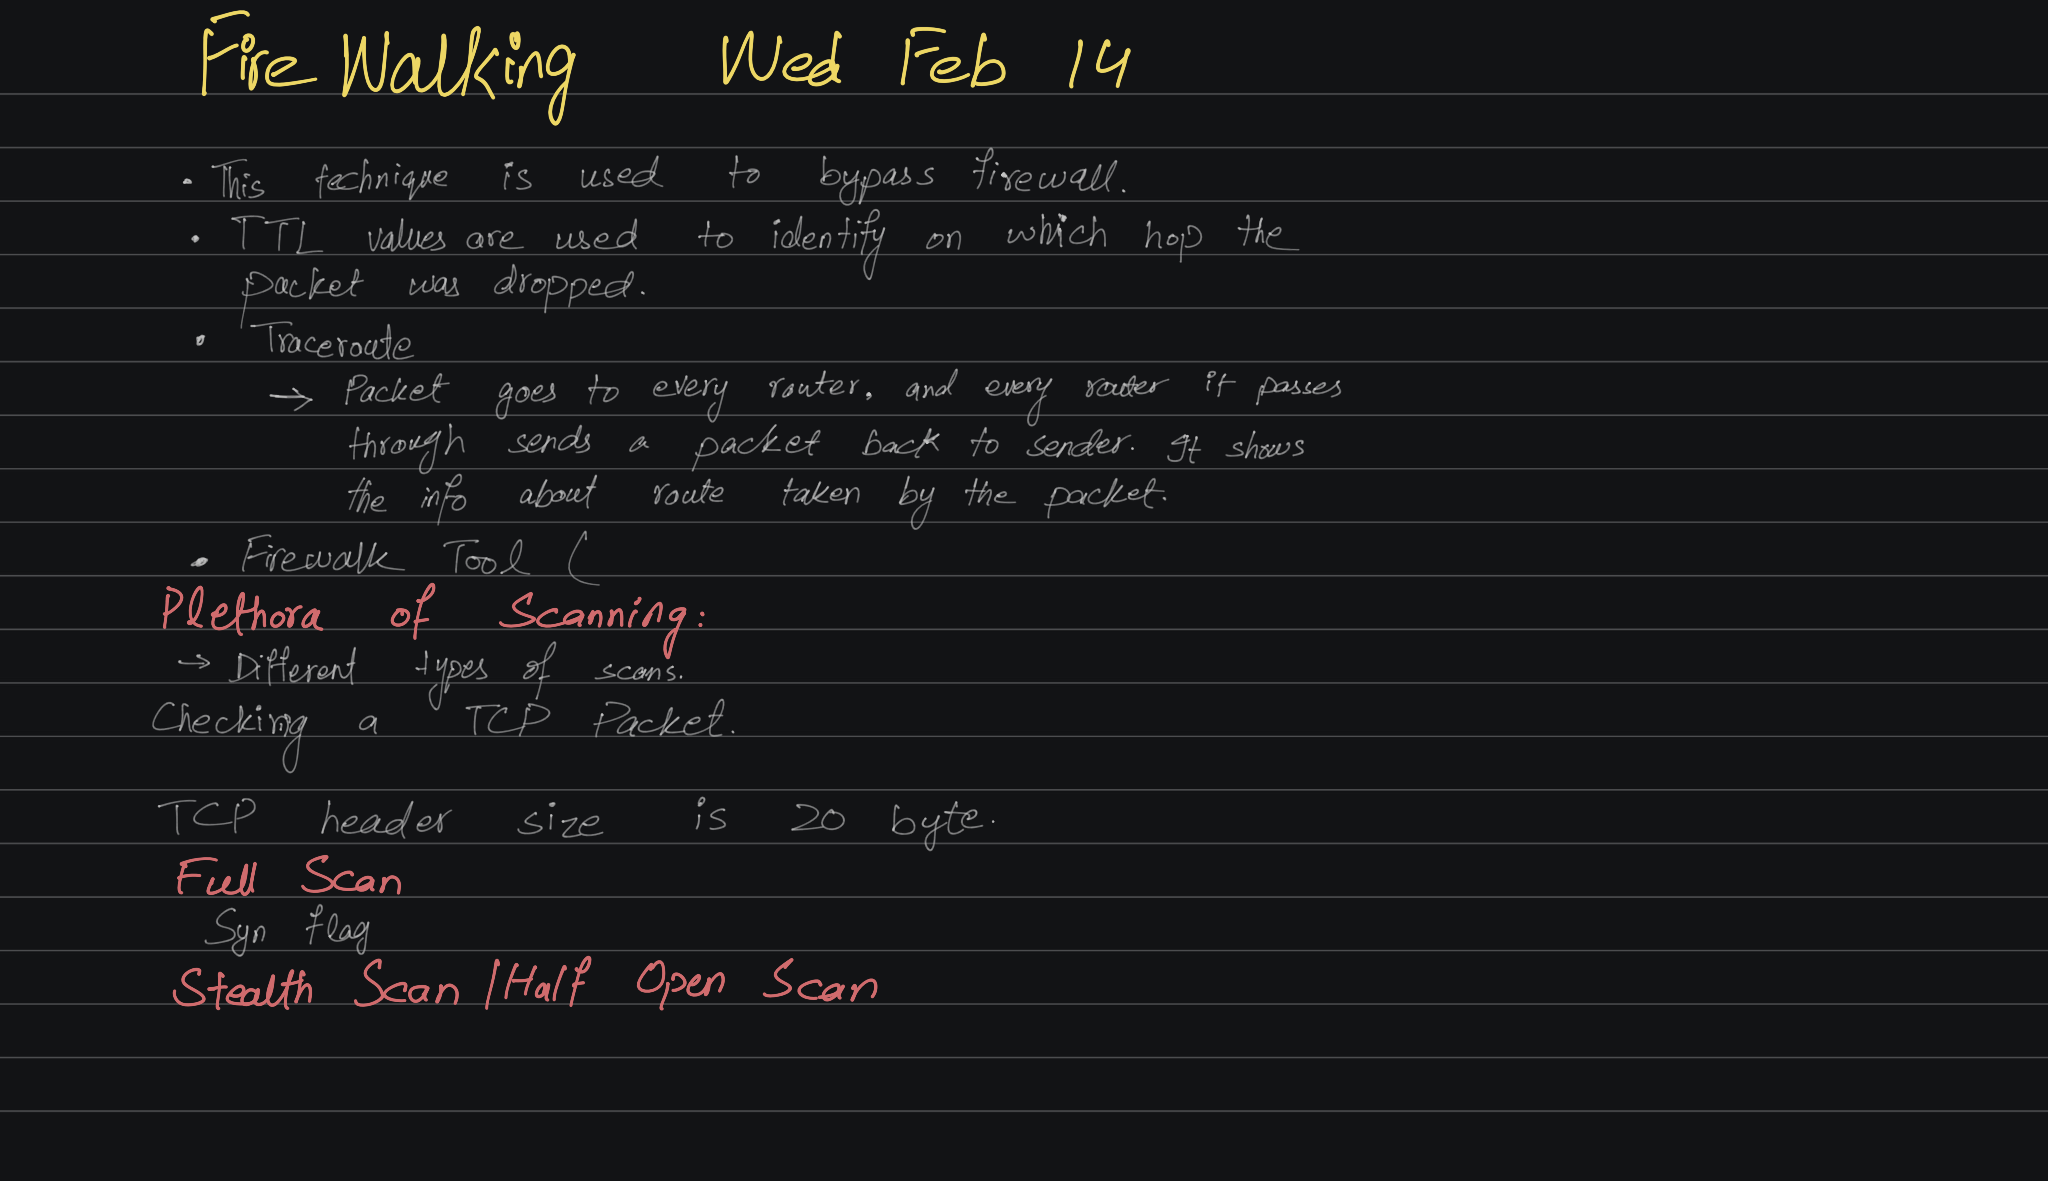 Fire Walking Wed Feb 14
• This technique is used to bypass firewall.
• TTL values are used to identify on which hop the
packet was dropped.
• Traceroute
→ Packet goes to every router, and every router it passes
through sends a packet back to sender. It shows
the info about route taken by the packet.
• Firewalk Tool (
Plethora of Scanning:
→ Different types of scans.
Checking a TCP Packet.
TCP header size is 20 byte.
Full Scan
Syn flag
Stealth Scan / Half Open Scan